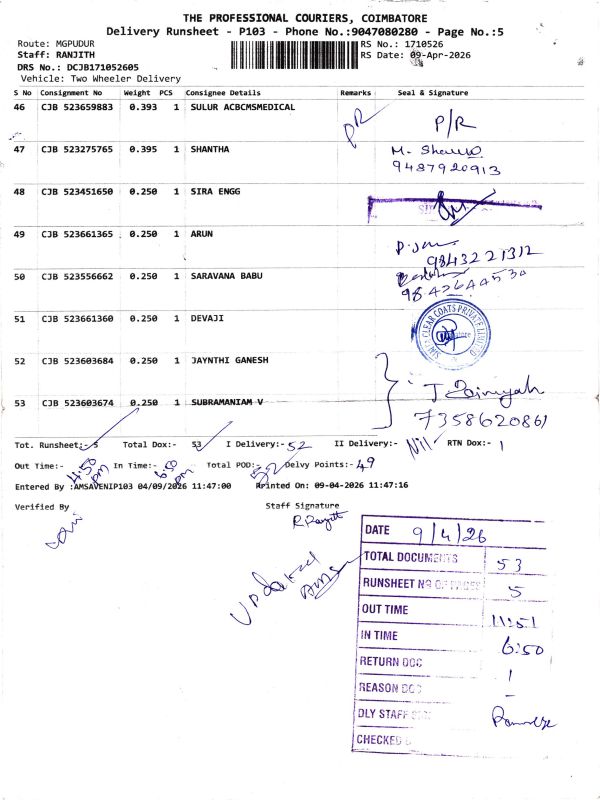 THE PROFESSIONAL COURIERS, COIMBATORE
Delivery Runsheet - P103 - Phone No.:9047080280 - Page No.:5
Route: MGPUDUR RS No.: 1710526
Staff: RANJITH RS Date: 09-Apr-2026
DRS No.: DCJB171052605
Vehicle: Two Wheeler Delivery
S No Consignment No Weight PCS Consignee Details Remarks Seal & Signature
46 CJB 523659883 0.393 1 SULUR ACBCMSMEDICAL PR P/R
47 CJB 523275765 0.395 1 SHANTHA M.
9487920913
48 CJB 523451650 0.250 1 SIRA ENGG
49 CJB 523661365 0.250 1 ARUN
9843221312
50 CJB 523556662 0.250 1 SARAVANA BABU
9842644530
51 CJB 523661360 0.250 1 DEVAJI CLEAR COATS PRIVATE LIMITED
52 CJB 523603684 0.250 1 JAYNTHI GANESH
53 CJB 523603674 0.250 1 SUBRAMANIAM V
7358620861
Tot. Runsheet:- 5 Total Dox:- 53 I Delivery:- 52 II Delivery:- Nil RTN Dox:- 1
Out Time:- 4:50 pm In Time:- 6:50 pm Total POD:- 52 Delvy Points:- 49
Entered By :AMSAVENIP103 04/09/2026 11:47:00 Printed On: 09-04-2026 11:47:16
Verified By Staff Signature
Updated
DATE 9/4/26
TOTAL DOCUMENTS 53
RUNSHEET NO OF PAGES 5
OUT TIME 11:51
IN TIME 6:50
RETURN DOC 1
REASON DOC -
DLY STAFF
CHECKED